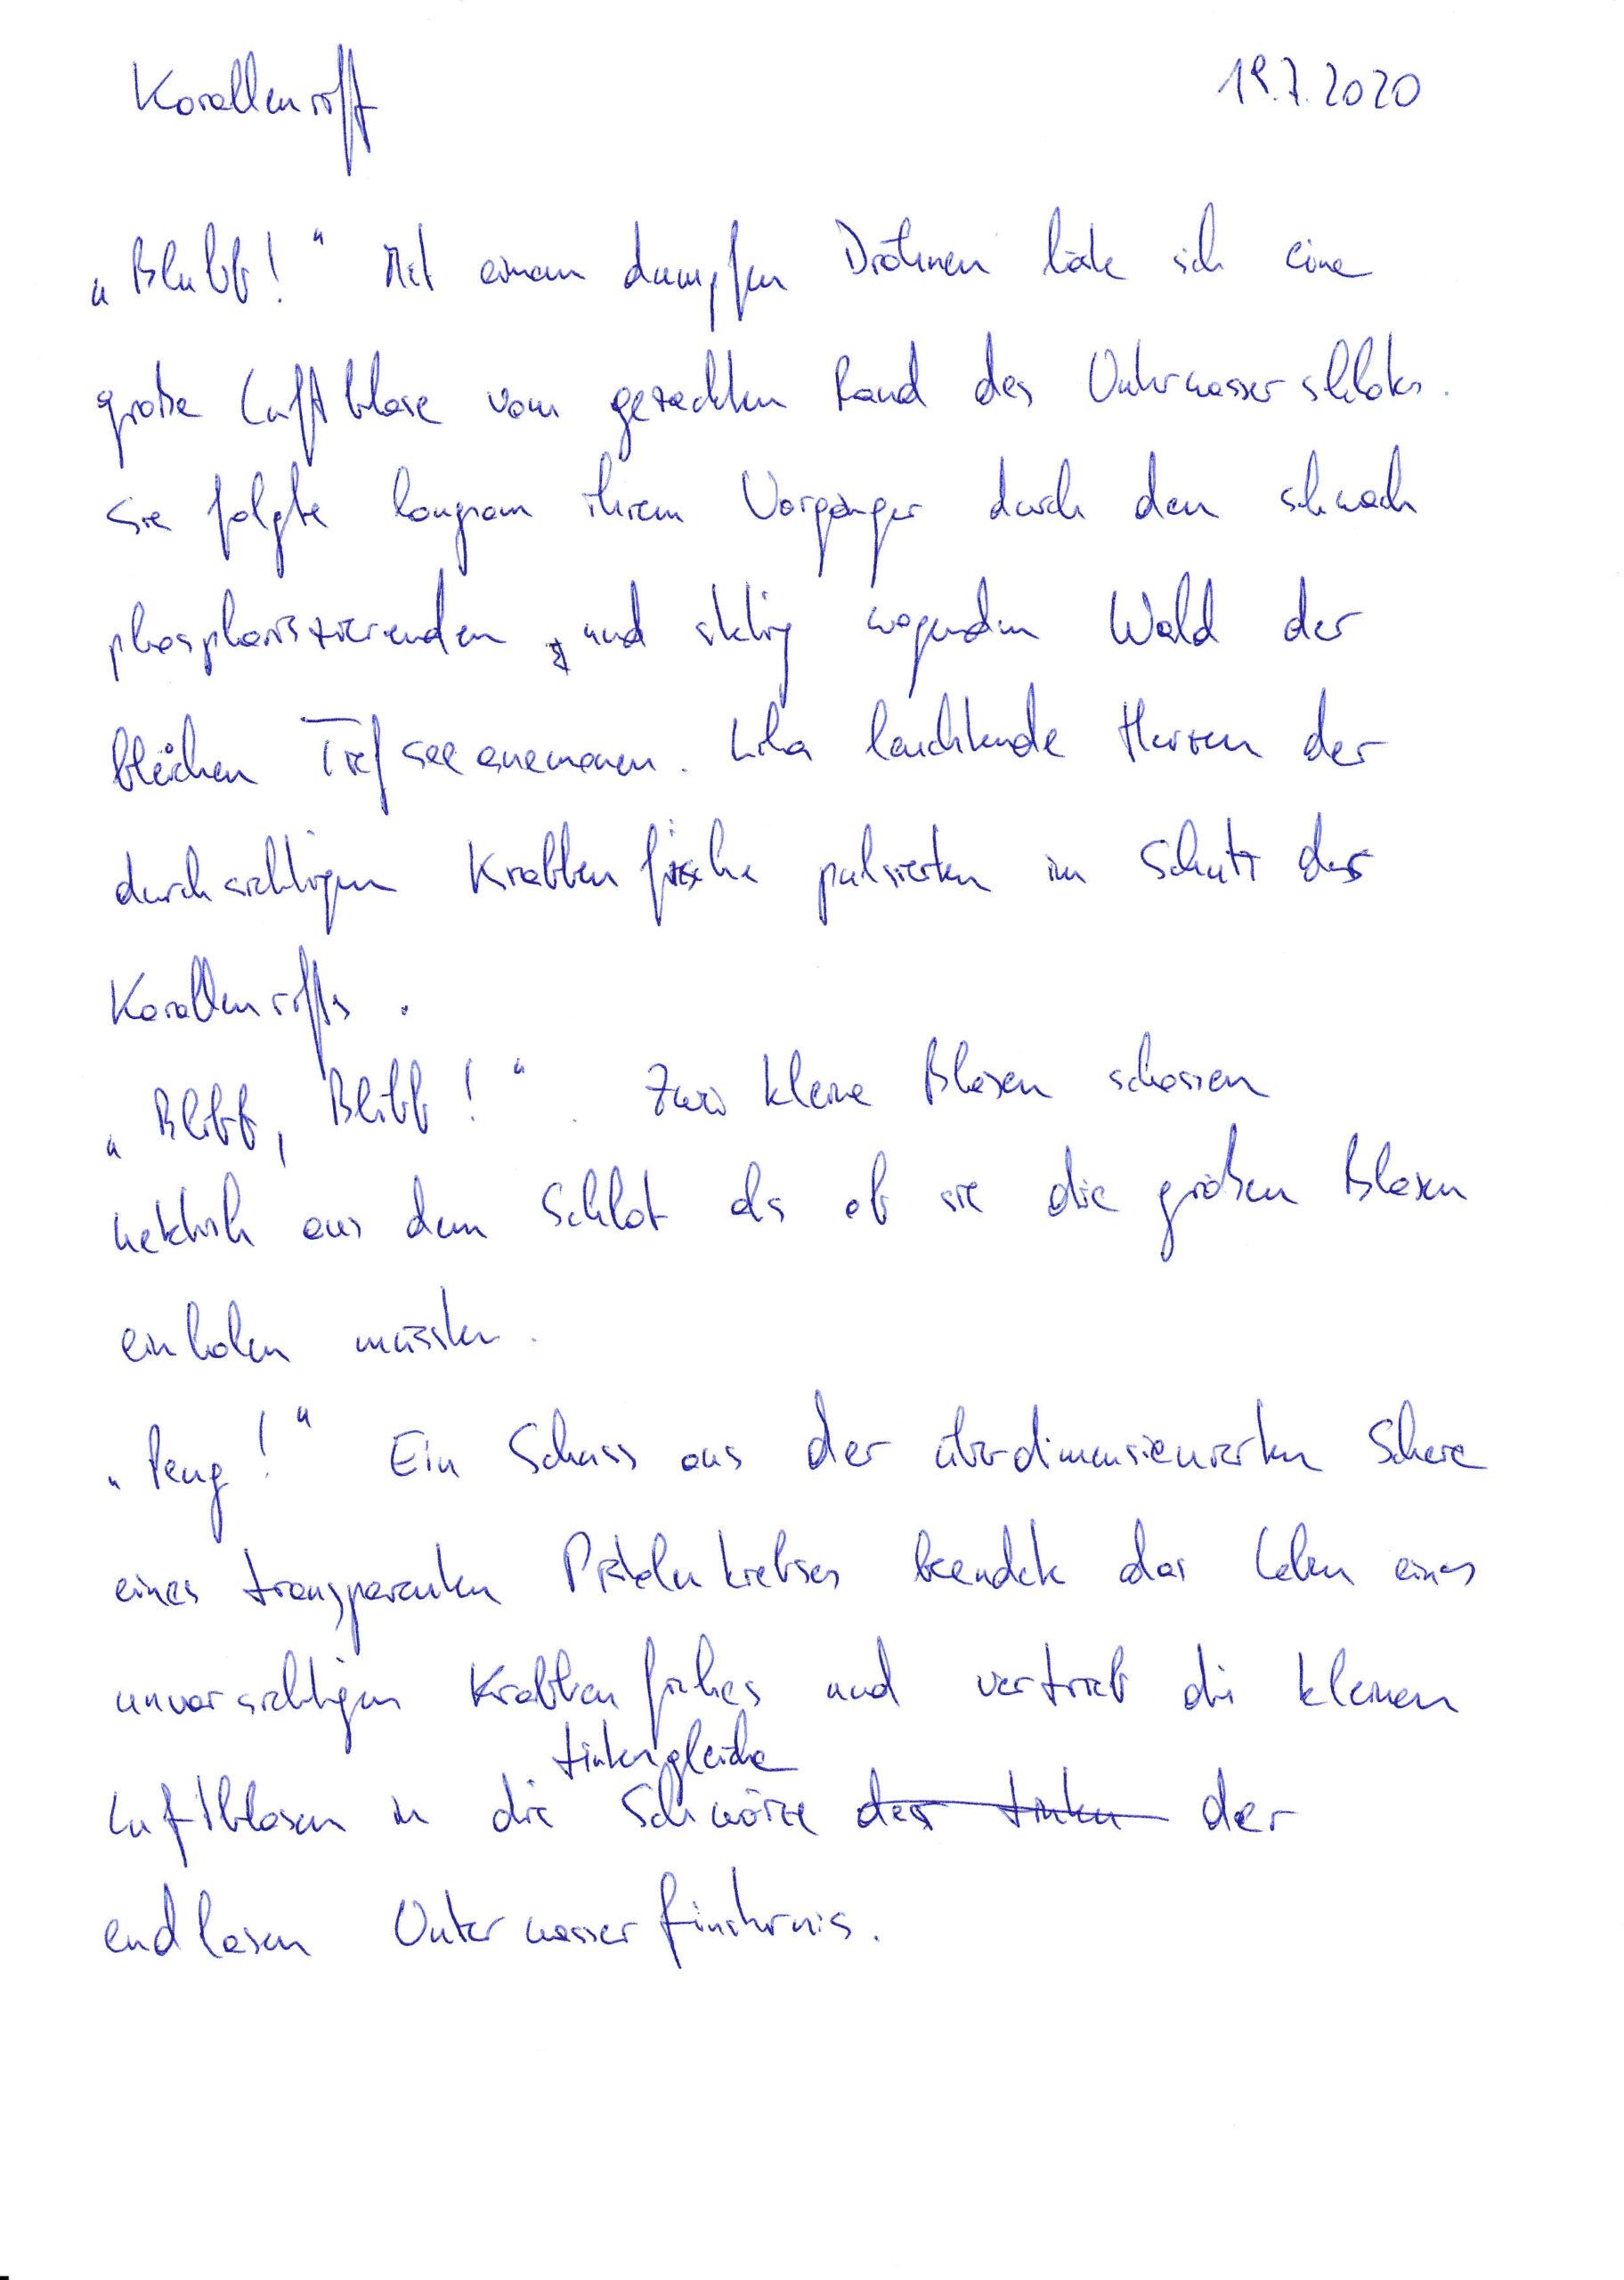 Korallenriff 19.7.2020
„Blubb!" Mit einem dumpfen Dröhnen löste sich eine
große Luftblase vom gezackten Rand des Unterwasserschlotes.
Sie folgte langsam ihrem Vorgänger durch den schwach
phosphoriszierenden und wogenden Wald der
bleichen Tiefseeanemonen. Lila leuchtende Herzen der
durchsichtigen Krabbenfische pulsierten im Schutz des
Korallenriffs.
„Blibb, Blibb!". Zwei kleine Blasen schossen
hektisch aus dem Schlot als ob sie die großen Blasen
einholen müssten.
„Peng!" Ein Schuss aus der überdimensionierten Schere
eines transparenten Pistolenkrebses beendete das Leben eines
unvorsichtigen Krabbenfisches und vertrieb die kleinen
tintengleiche
Luftblasen in die Schwärze der tinten der
endlosen Unterwasserfinsternis.